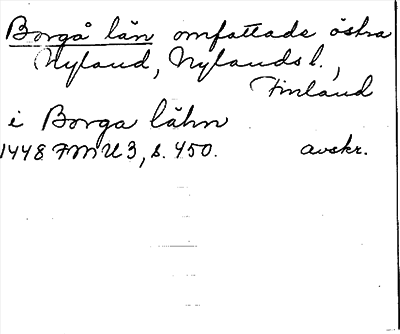 Borgå län omfattade östra
Nyland, Nylands l.,
Finland
i Borga lähn
1448 FMU 3, s. 450. avskr.